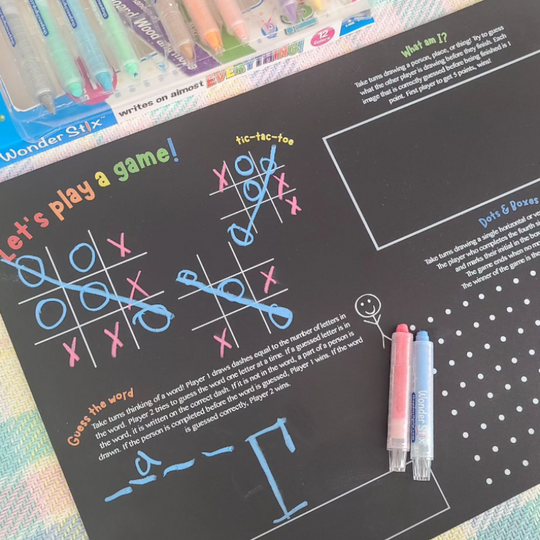 Wonder Stix
writes on almost EVERYTHING!
12
Let's play a game!
tic-tac-toe
O X
X O O
O X
O X
O O X
O O X
X X O
O X
O
X O
What am I?
Take turns drawing a person, place, or thing! Try to guess
what the other player is drawing before they finish. Each
image that is correctly guessed before being finished is 1
point. First player to get 5 points, wins!
Dots & Boxes
Take turns drawing a single horizontal or
The player who completes the fourth
and marks their initial in the
The game ends when no
The winner of the game is the
Guess the word
Take turns thinking of a word! Player 1 draws dashes equal to the number of letters in
the word. Player 2 tries to guess the word one letter at a time. If a guessed letter is in
the word, it is written on the correct dash. If it is not in the word, a part of a person is
drawn. If the person is completed before the word is guessed, Player 1 wins. If the word
is guessed correctly, Player 2 wins.
_ a _ _ _
Wonder Stix